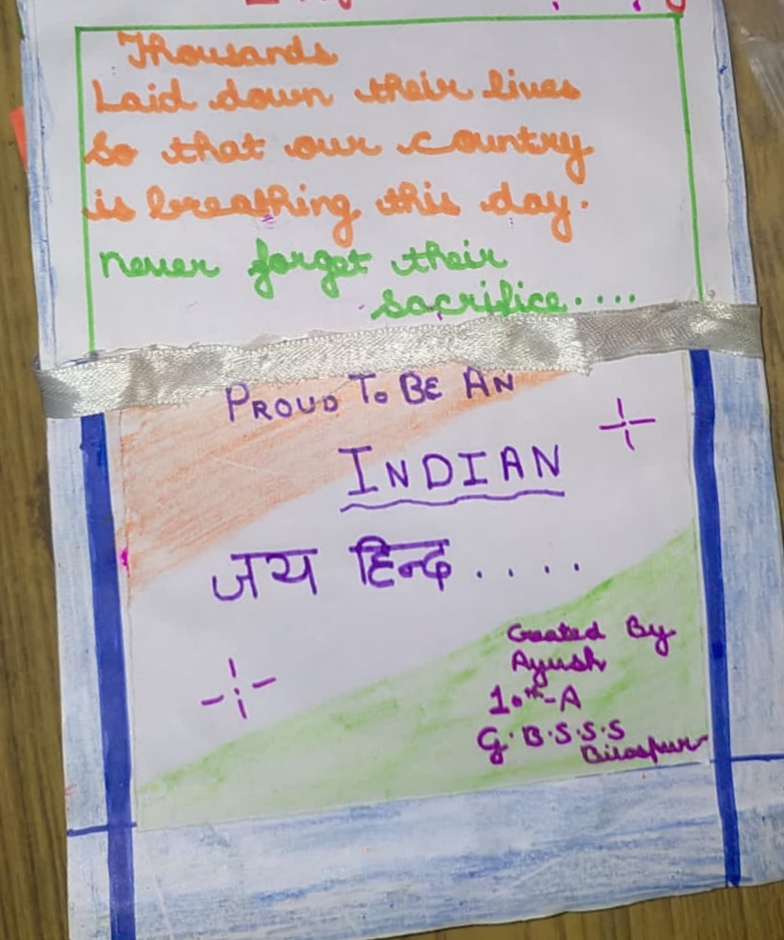 Thousands
Laid down their lives
So that our country
is breathing this day.
never forget their
sacrifice....
PROUD TO BE AN
INDIAN
जय हिन्द....
Created By
Ayush
10th-A
G.B.S.S.S
Bilaspur